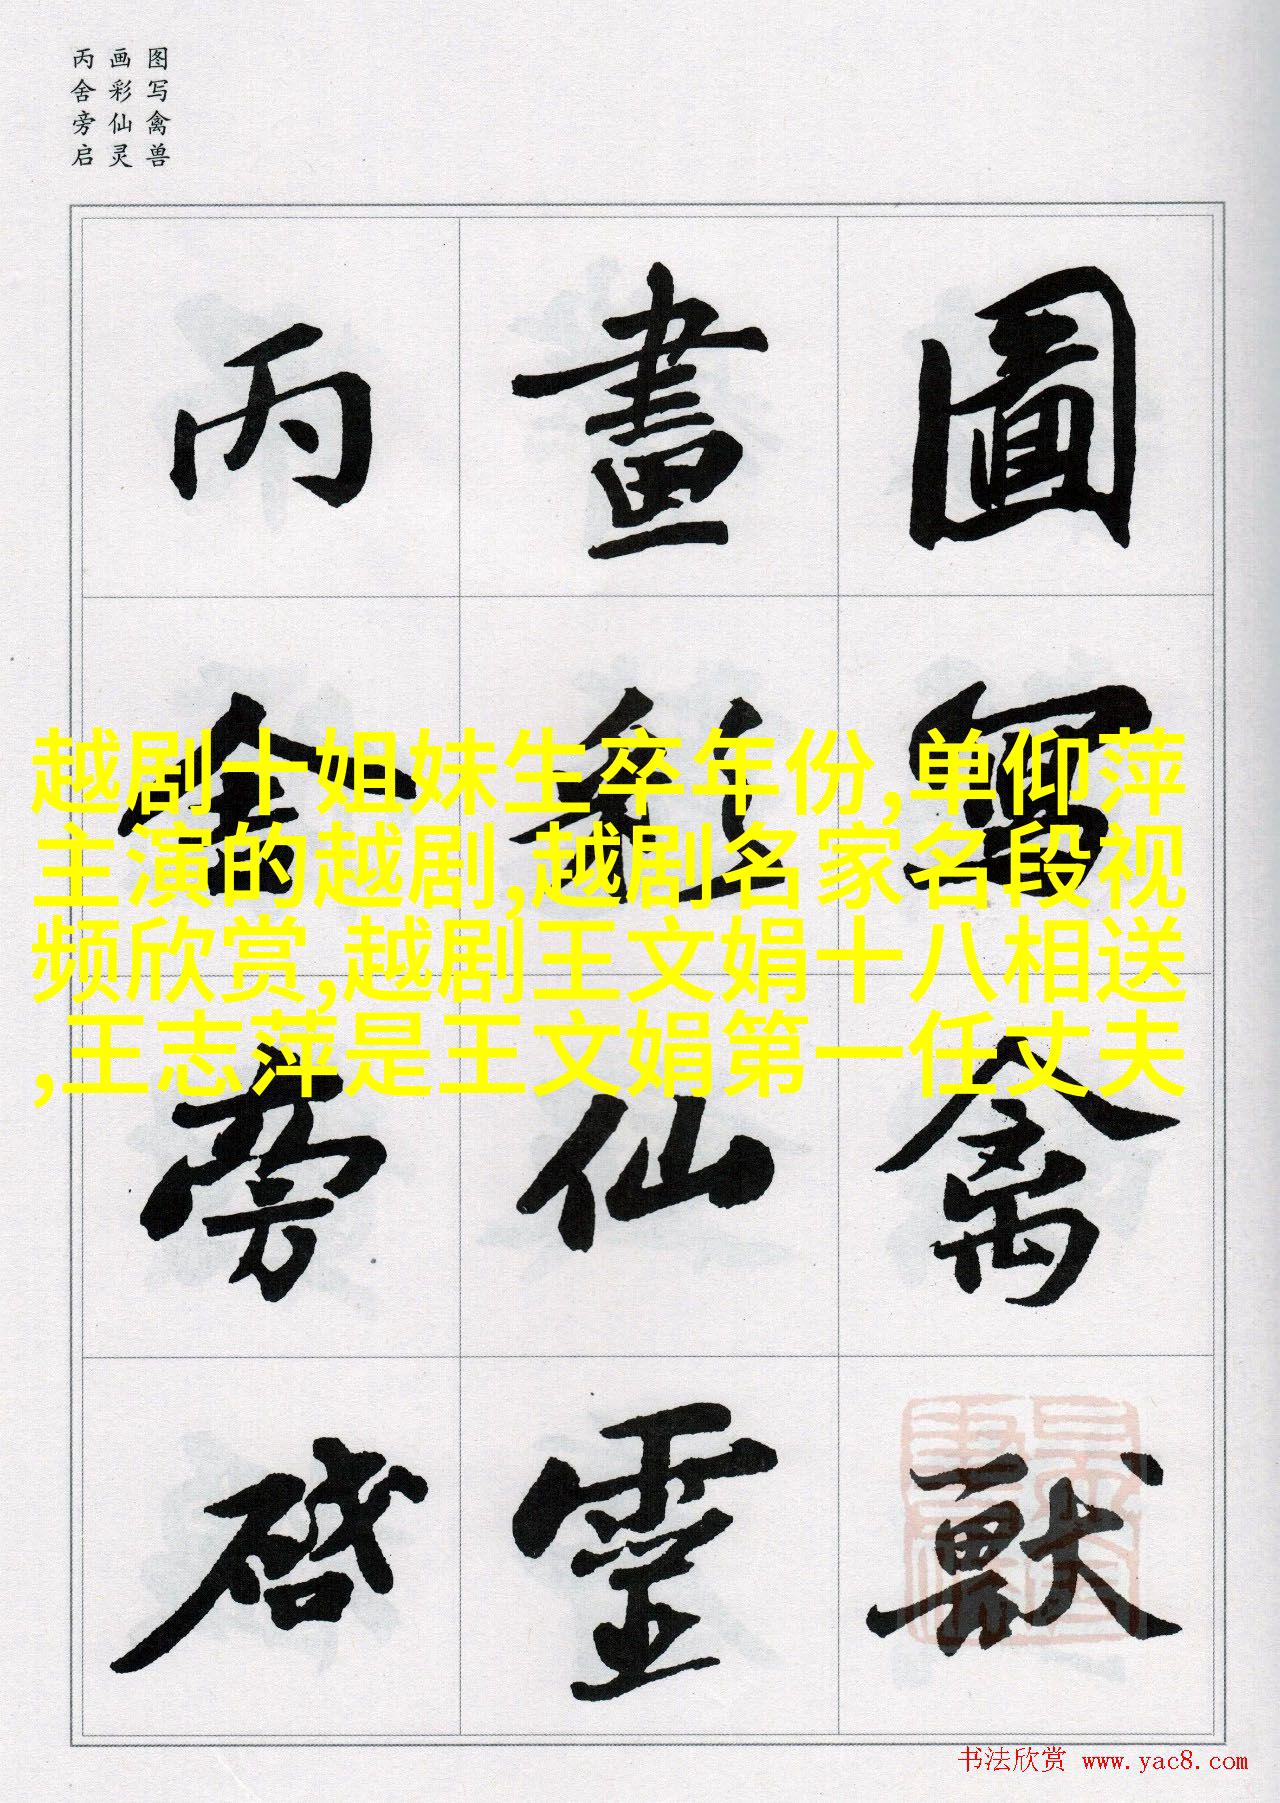 图写禽兽
画彩仙灵
丙舍旁启
圖寫禽獸
畫彩仙靈
丙舍旁啓
越剧十姐妹生卒年份,单仰萍
主演的越剧,越剧名家名段视
频欣赏,越剧王文娟十八相送
,王志萍是王文娟第一任丈夫
书法欣赏 www.yac8.com